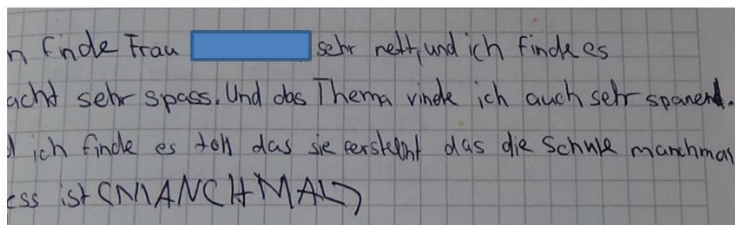 n finde Frau sehr nett, und ich finde es
acht sehr spass. Und das Thema vinde ich auch sehr spanend.
d ich finde es toll das sie ferstehnt das die Schule manchmal
ess ist (MANCHMAL)